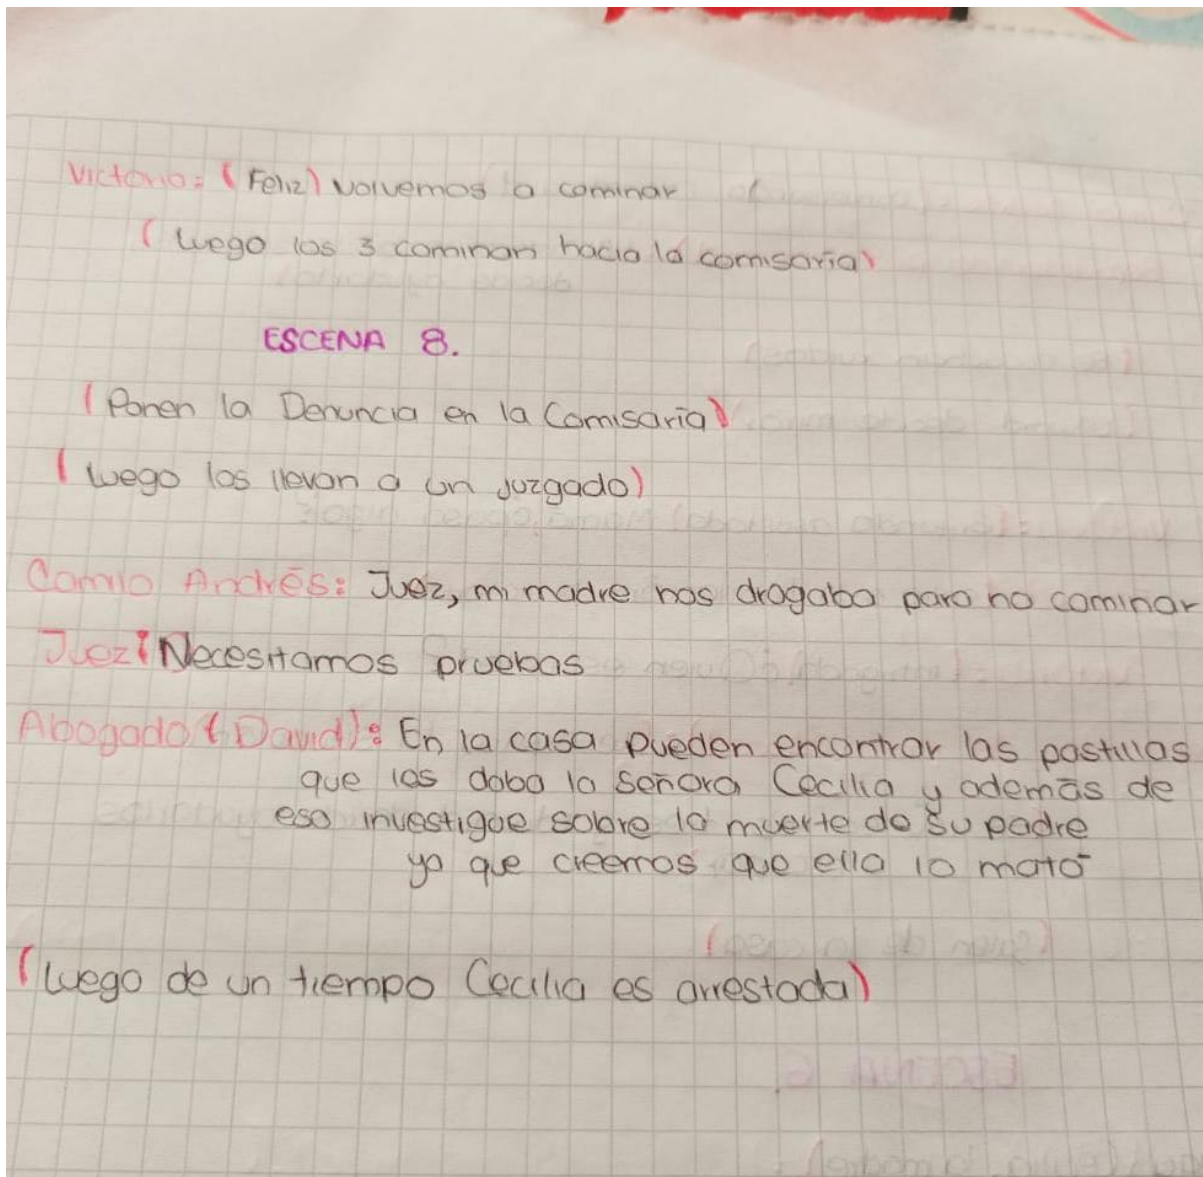 Victoria: (Feliz) volvemos a caminar
(luego los 3 caminan hacia la comisaria)
ESCENA 8.
(Ponen la Denuncia en la Comisaria)
(luego los llevan a un juzgado)
Camilo Andrés: Juez, mi madre nos drogaba para no caminar
Juez: Necesitamos pruebas
Abogado (David): En la casa pueden encontrar las pastillas
que les daba la señora Cecilia y además de
eso investigue sobre la muerte de su padre
ya que creemos que ella lo mató
(luego de un tiempo Cecilia es arrestada)
ESCENA 6.